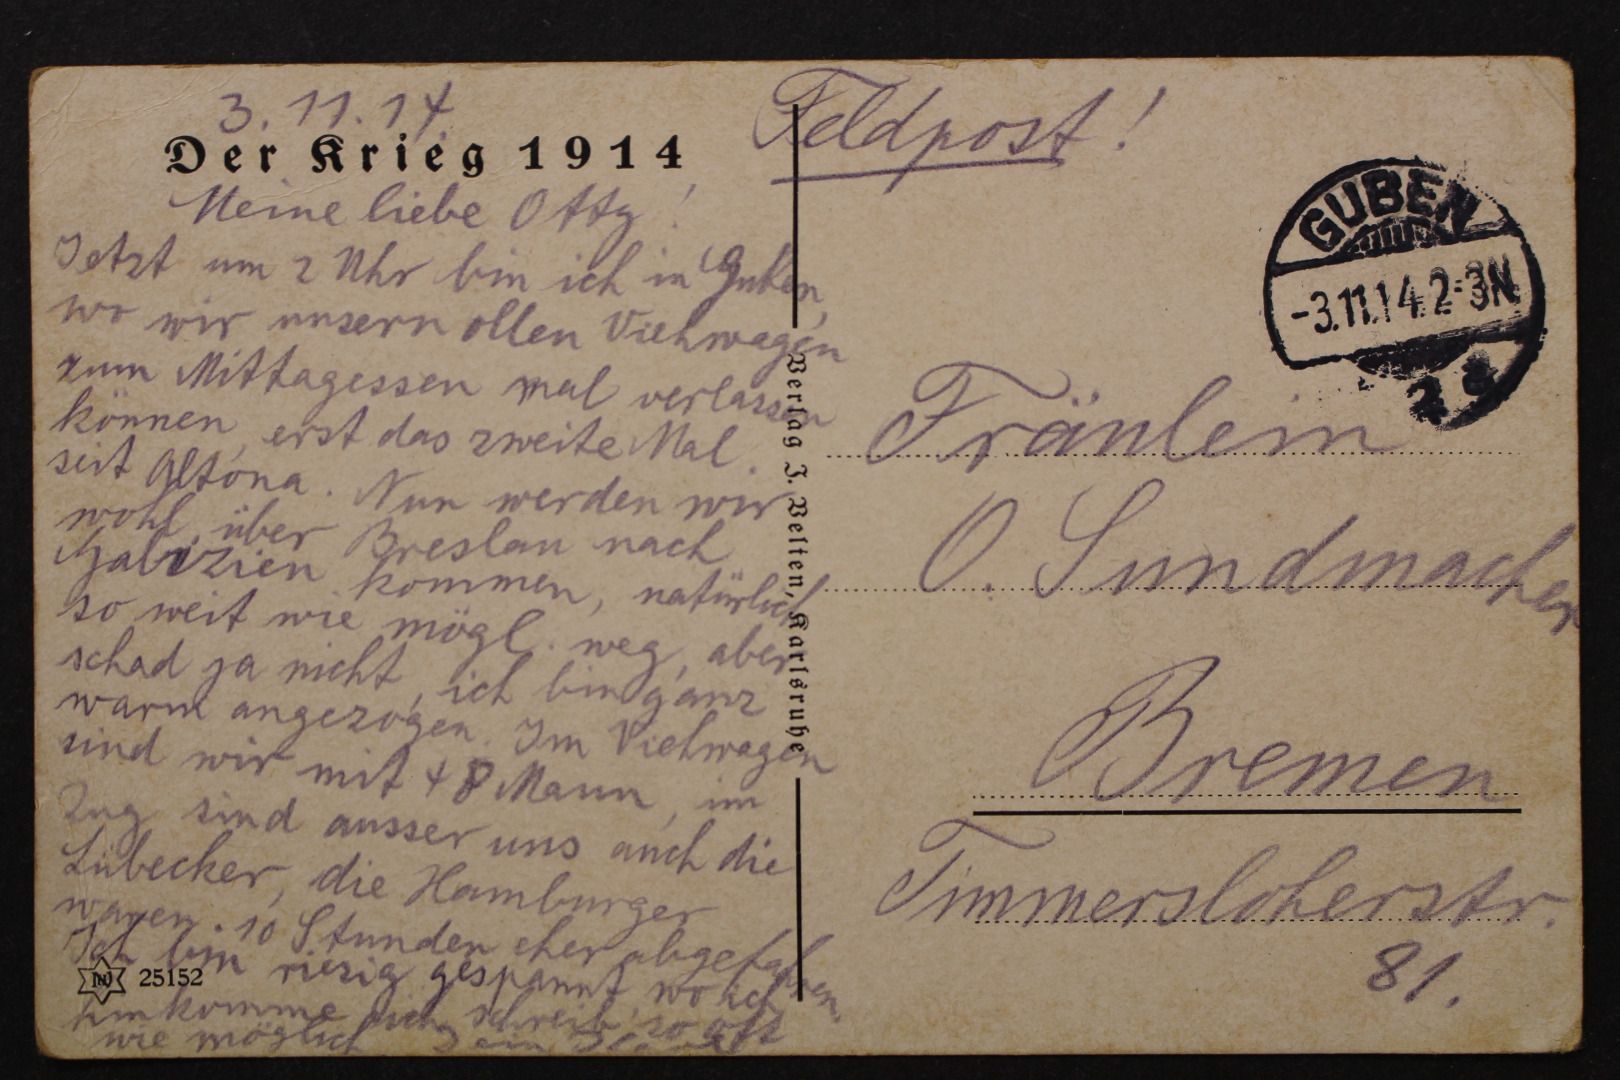 3.11.14
Der Krieg 1914
Meine liebe Otty!
Jetzt um 2 Uhr bin ich in Guben,
wo wir unsern ollen Viehwagen
zum Mittagessen mal verlassen
können, erst das zweite Mal
seit Altona. Nun werden wir
wohl über Breslau nach
Galizien kommen, natürlich
so weit wie mögl. weg, aber
schad ja nicht, ich bin ganz
warm angezogen. Im Viehwagen
sind wir mit 48 Mann, im
Zug sind ausser uns auch die
Lübecker, die Hamburger
waren 10 Stunden eher abgefahren.
Ich bin riesig gespannt wo ich
hinkomme, ich schreib so oft
wie möglich
25152
Verlag J. Velten, Karlsruhe
Feldpost!
GUBEN
-3.11.14.2-3N
2a
Fräulein
O. Sundmacher
Bremen
Timmersloherstr.
81.